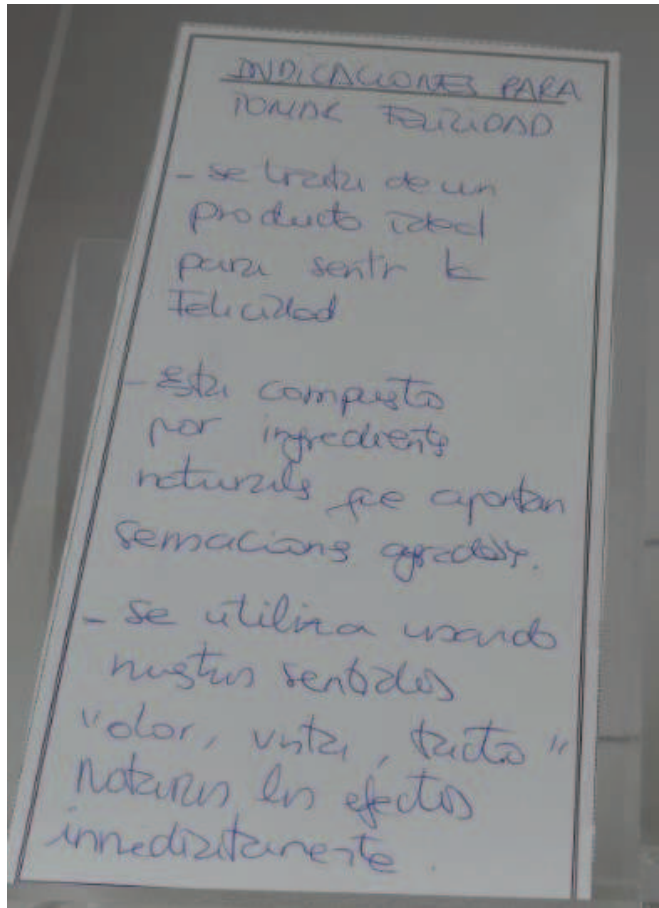 INDICACIONES PARA
TOMAR FELICIDAD
- se trata de un
producto ideal
para sentir la
Felicidad
- Esta compuesto
por ingredientes
naturales que aportan
sensaciones agradables.
- Se utiliza usando
nuestros sentidos
"olor, vista, tacto"
Notarás los efectos
inmediatamente.